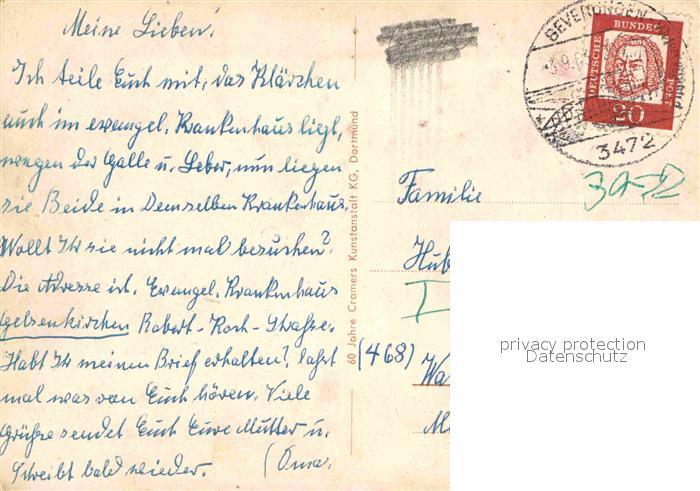 Meine Lieben!
Ich teile Euch mit, das Klärchen
auch im evangel. Krankenhaus liegt,
wegen der Galle u. Leber, nun liegen
sie Beide in Demselben Krankenhaus.
Wollt Ihr sie nicht mal besuchen?
Die Adresse ist. Evangel. Krankenhaus
Gelsenkirchen Robert-Koch-Straße.
Habt Ihr meinen Brief erhalten? laßt
mal was von Euch hören. Viele
Grüße sendet Euch Eure Mutter u.
Schreibt bald wieder. (Oma.
60 Jahre Cramers Kunstanstalt KG, Dortmund
BEVERUNGEN
3472
DEUTSCHE BUNDESPOST
20
Familie
Hub
(468) Wa
privacy protection
Datenschutz